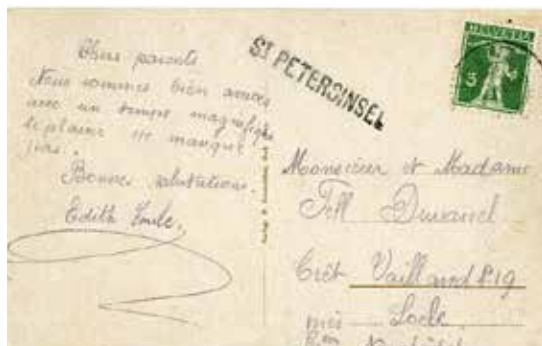 Chers parents
Nous sommes bien arrivés
avec un temps magnifique
le plaisir ne manque
pas.
Bonnes salutations.
Edith
ST PETERSINSEL
HELVETIA
5
Monsieur et Madame
Tell
Crêt Vaillant No 19
Locle